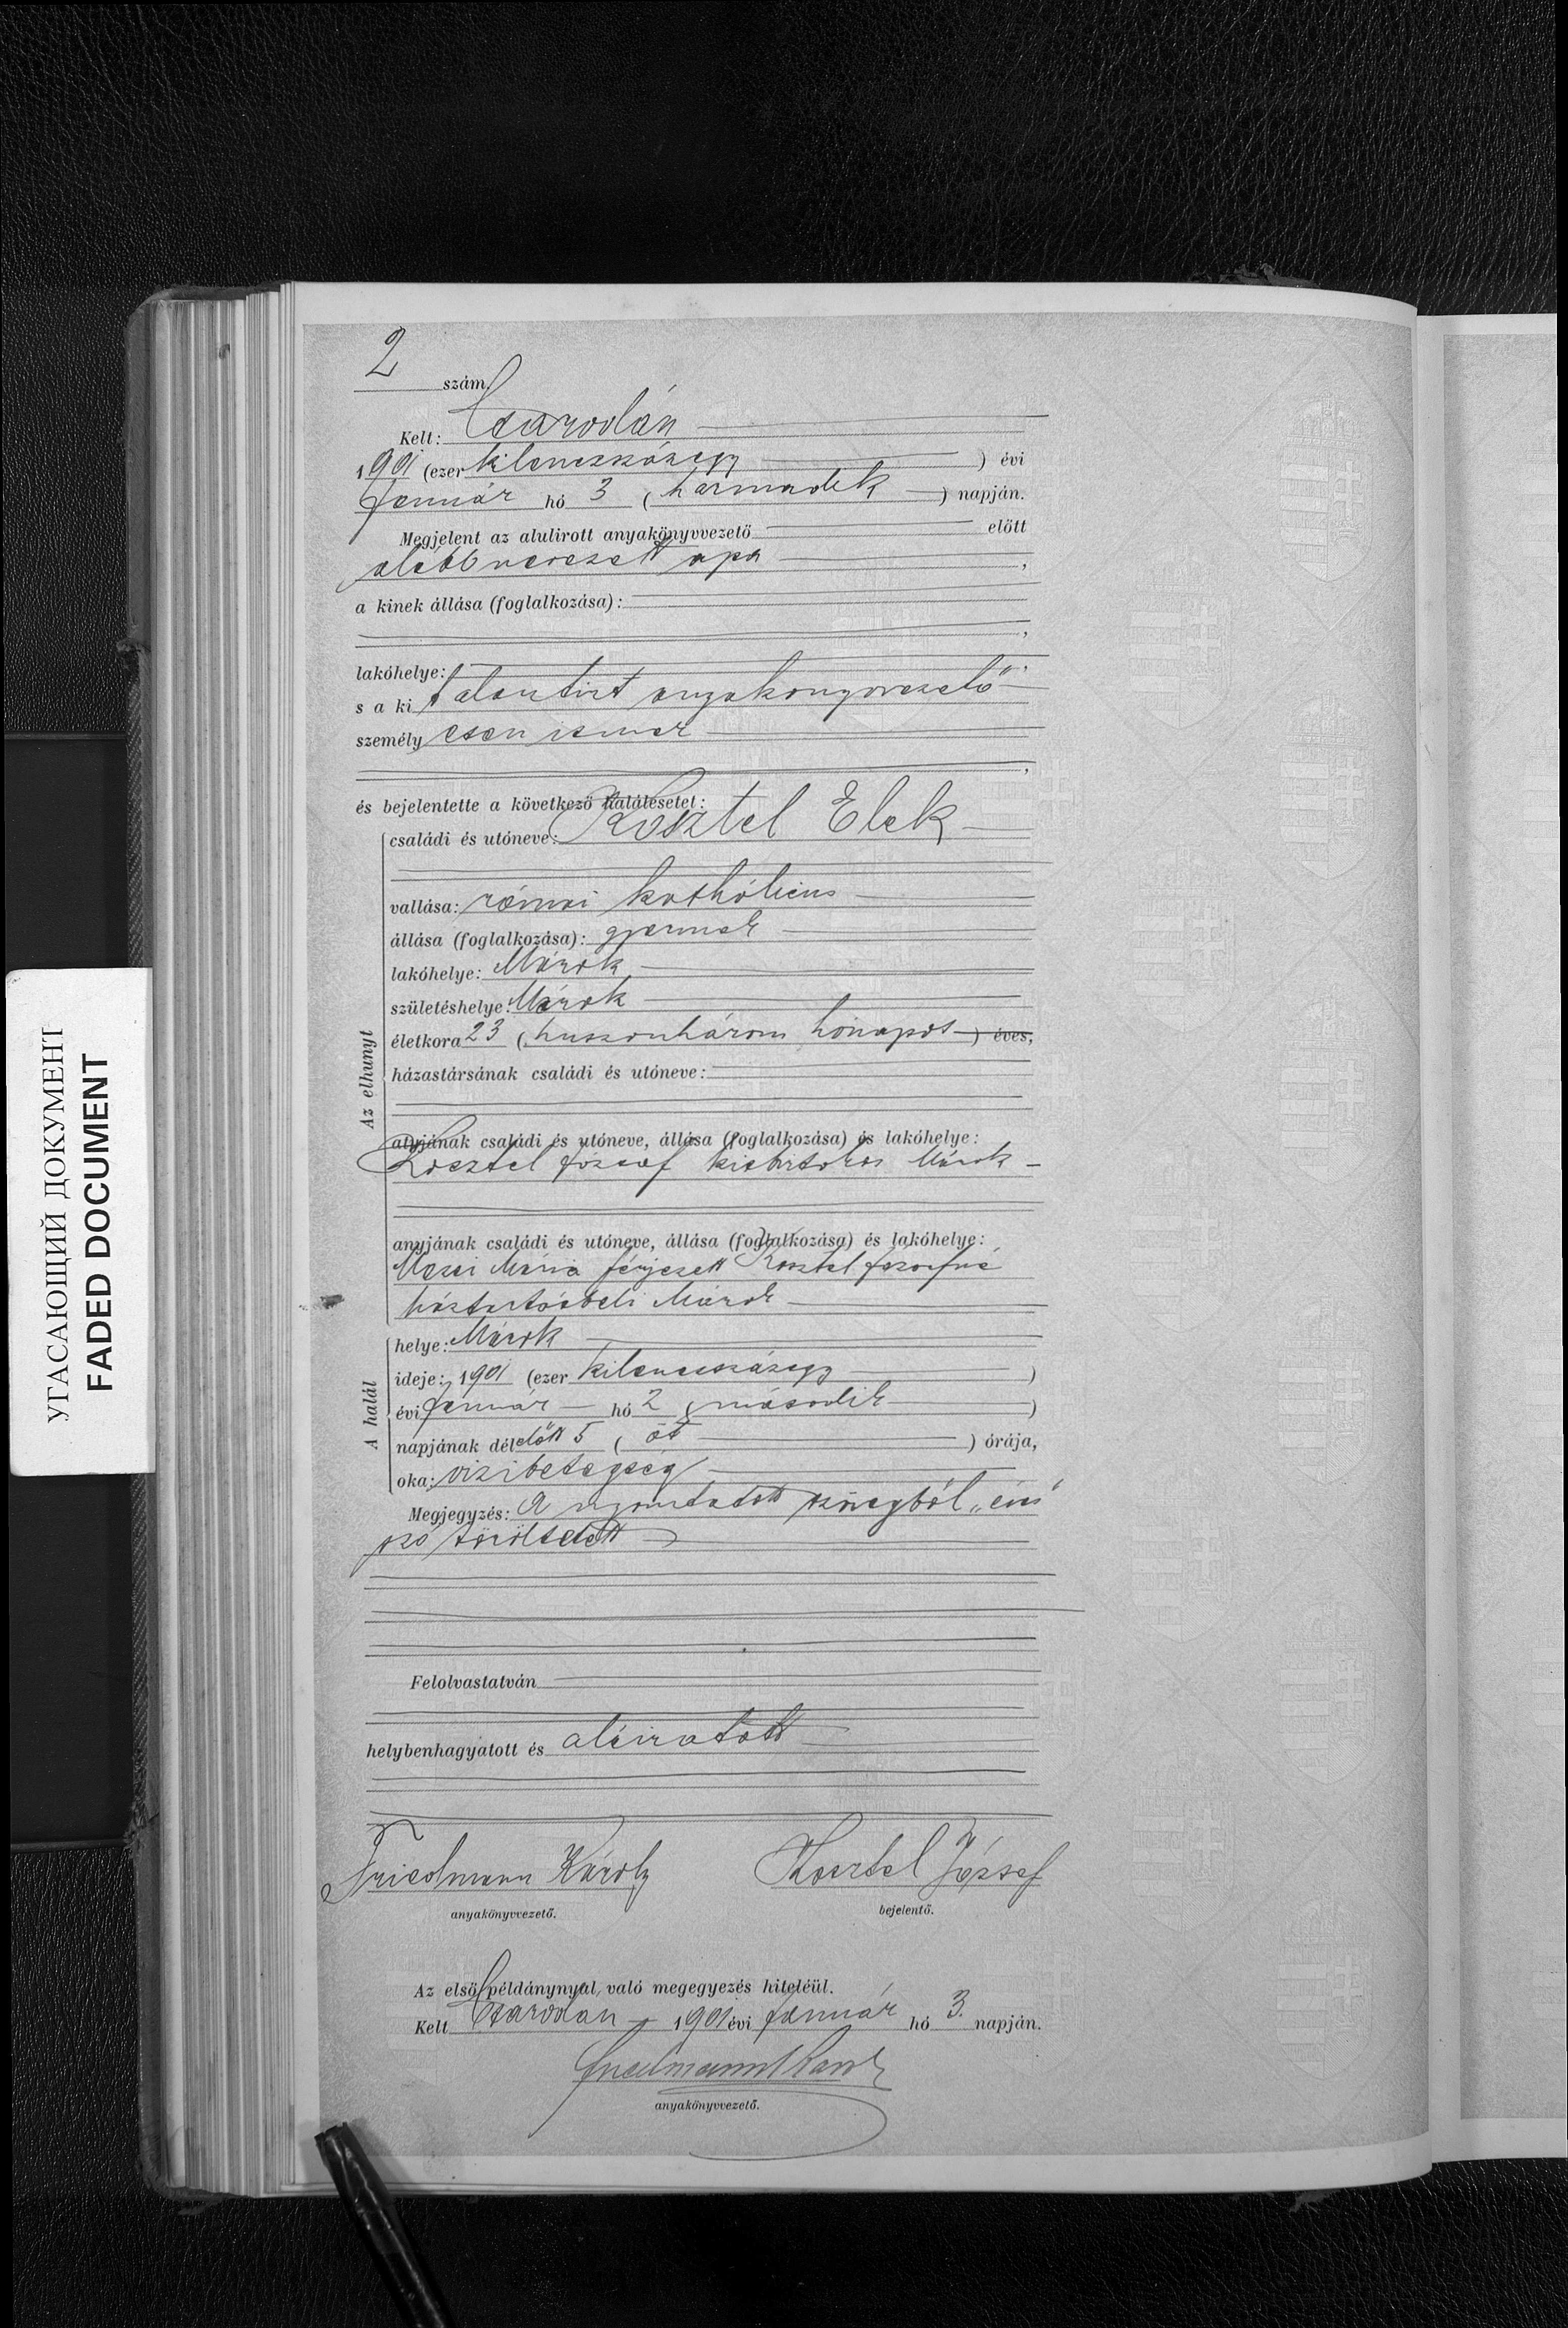 УГАСАЮЩИЙ ДОКУМЕНТ
FADED DOCUMENT
2 szám.
Kelt: Csarodán
1901 (ezer kilenczszázegy ) évi
Január hó 3 ( harmadik ) napján.
Megjelent az alulirott anyakönyvvezető előtt
alább nevezett apa ,
a kinek állása (foglalkozása):
,
lakóhelye: ,
s a ki t alantirt anyakönyvvezető
személy esen ismer
,
és bejelentette a következő halálesetet:
Az elhunyt
családi és utóneve: Kosztel Elek
vallása: római kathólicus
állása (foglalkozása): gyermek
lakóhelye: Márok
születéshelye: Márok
életkora 23 ( huszonhárom hónapos ) éves,
házastársának családi és utóneve:
atyjának családi és utóneve, állása (foglalkozása) és lakóhelye:
Kosztel József kisbirtokos Márok
anyjának családi és utóneve, állása (foglalkozása) és lakóhelye:
Mária férjezett Kosztel Józsefné
háztartásbeli Márok
A halál
helye: Márok
ideje: 1901 (ezer kilenczszázegy )
évi Január hó 2 ( második )
napjának délelőtt 5 ( öt ) órája,
oka: vizibetegség
Megjegyzés: A nyomtatott szövegből „éves"
szó töröltetett
Felolvastatván
helybenhagyatott és aláiratott
Friedmann Károly Kosztel József
anyakönyvvezető. bejelentő.
Az első példánynyal való megegyezés hiteléül.
Kelt Csarodán 1901 évi Január hó 3. napján.
Friedmann Károly
anyakönyvvezető.